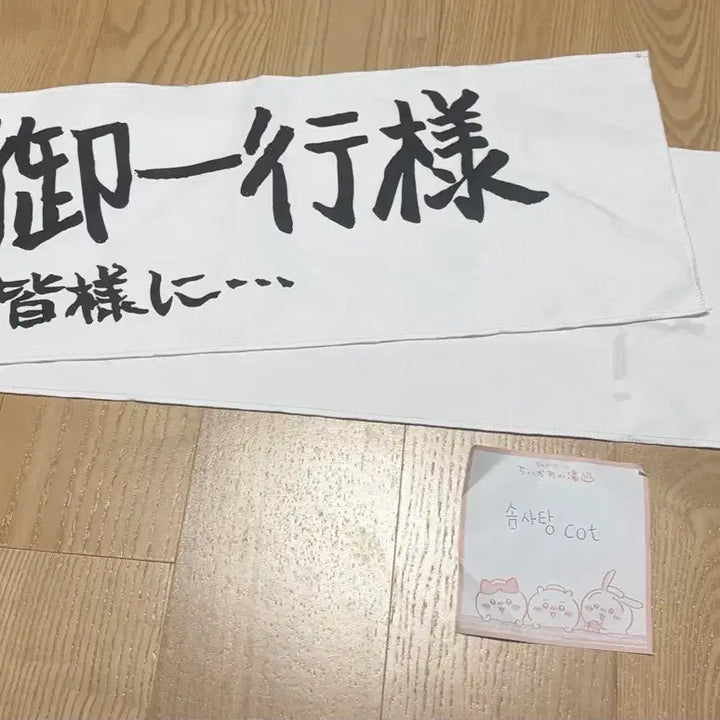 御一行様
皆様に…
ちいかわの湯
솜사탕 cot